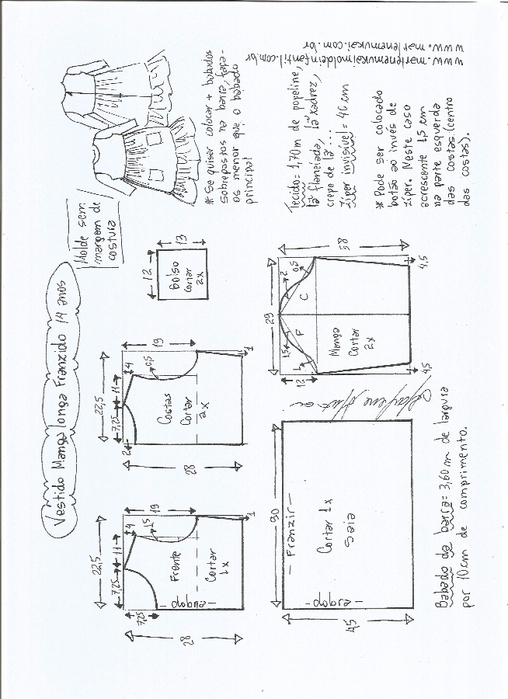 Vestido Manga longa Franzido 14 anos
Molde sem
margem de
costura
* Se quiser colocar + babados
sobrepostos na barra, faça-
os menor que o babado
principal
www.marlenemukaimoldeinfantil.com.br
www.marlenemukai.com.br
22,5
7,25
11
4
19
1,5
7,25
Frente
Cortar
1x
-dobra-
28
1
22,5
7,25
11
4
2
19
0,5
Costas
Cortar
2x
28
1
12
13
Bolso
Cortar
2x
Tecido= 1,70m de popeline,
lã flanelada, lã xadrez,
crepe de lã...
Zíper invisível = 46 cm
* Pode ser colocado
botão ao invés de
zíper. Neste caso
acrescente 1,5 cm
na parte esquerda
das costas (centro
das costas).
90
- Franzir -
Cortar 1x
Saia
-dobra-
45
29
12
1,5
1
2
0,5
F
C
Manga
Cortar
2x
58
4,5
4,5
Babado da barra= 3,60m de largura
por 10cm de comprimento.